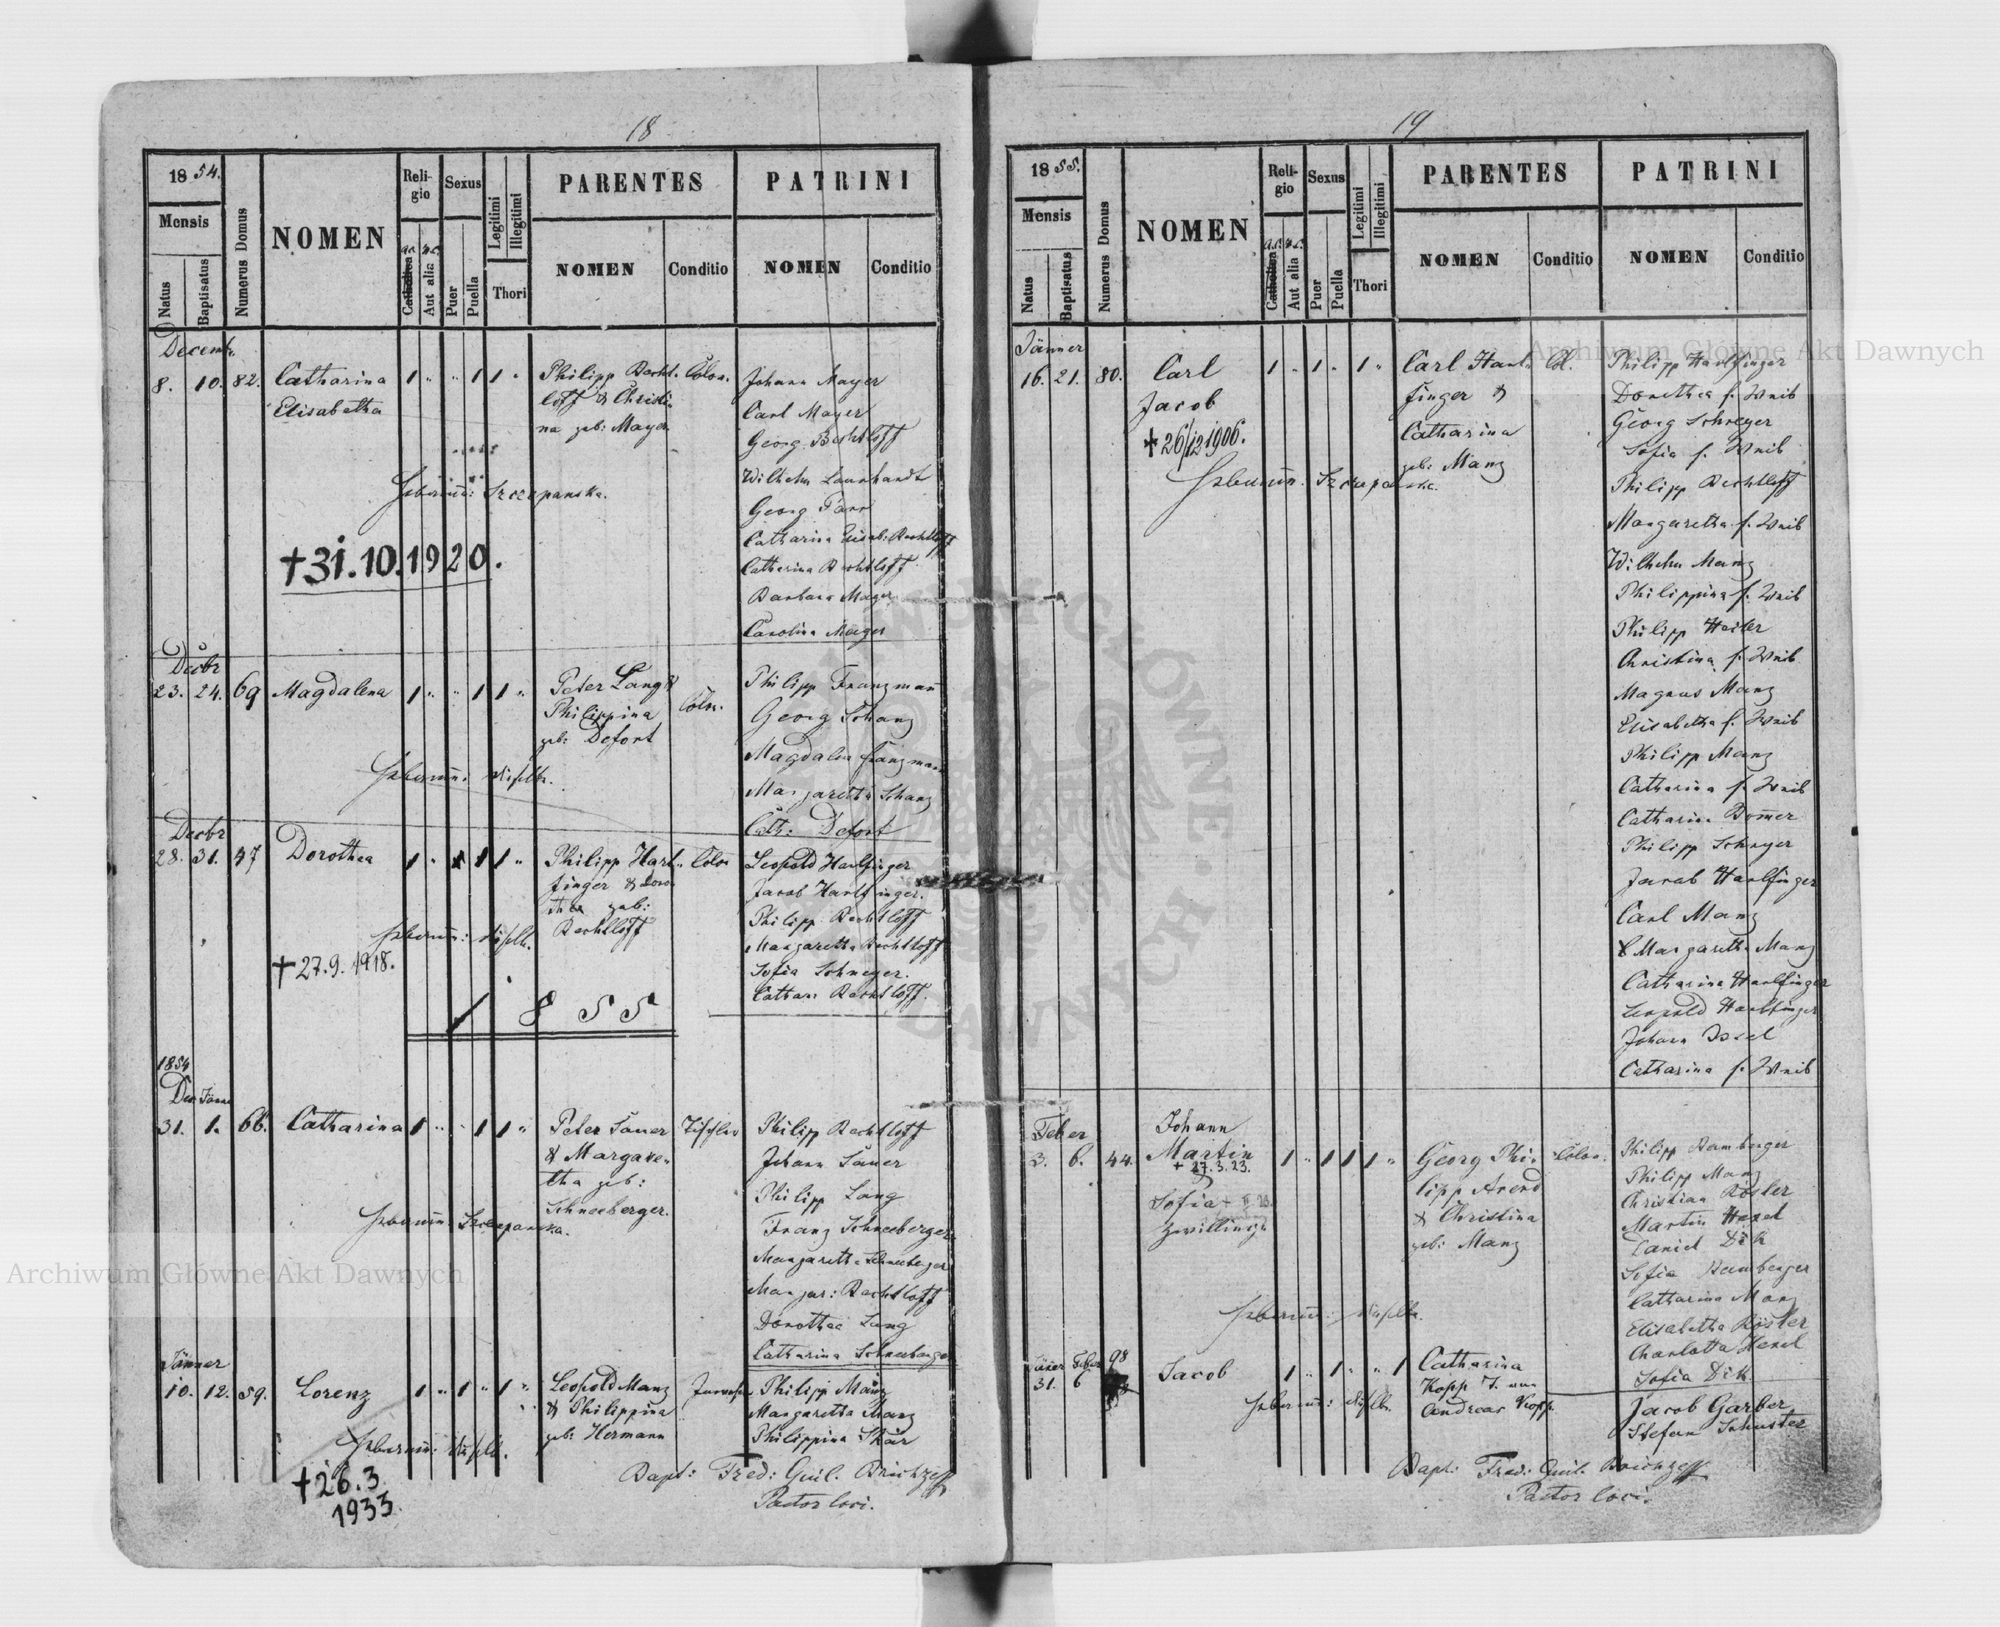 18
18 54.
Mensis
Natus
Baptisatus
Numerus Domus
NOMEN
Religio
Catholica
Aut alia
Sexus
Puer
Puella
Legitimi
Illegitimi
Thori
PARENTES
NOMEN
Conditio
PATRINI
NOMEN
Conditio
Decembr.
8. 10. 82. Catharina 1 " " 1 1 "
Elisabetha
Philipp Becht- Colon.
loff & Christi-
na geb: Mayer
Johann Mayer
Carl Mayer
Georg Bechtloff
Wilhelm Launhardt
Georg
Catharina Elisab: Bechtloff
Catharina Bechtloff
Barbara Mayer
Carolina Mayer
Hebamm: Szczepanska.
+31.10.1920.
Decbr
23. 24. 69 Magdalena 1 " " 1 1 "
Peter Lang &
Philippina Colon.
geb: Defort
Philipp Franzmann
Georg Schanz
Magdalena Franzmann
Margaretha Schanz
Cath: Defort
Hebamm: dieselbe.
Decbr
28. 31. 47 Dorothea 1 " 1 1 "
Philipp Hart- Colon
finger & Doro-
thea geb:
Bechtloff
Leopold Harlfinger
Jacob Harlfinger.
Philipp Bechtloff
Margaretha Bechtloff
Sofia Schreyer.
Cathar: Bechtloff.
Hebamm: dieselbe.
+27.9.1918.
1855
1854
Dec Jänner
31. 1. 66. Catharina 1 " " 1 1 "
Peter Sauer Tischler
& Margare-
tha geb:
Schneeberger.
Philipp Bechtloff
Johann Sauer
Philipp Lang
Franz Schneeberger
Margaretha Schneeberger
Margar: Bechtloff
Dorothea Lang
Catharina Schneeberger
Hebamm: Szczepanska.
Jänner
10. 12. 59. Lorenz 1 " 1 " 1 "
Leopold Manz
& Philippina
geb: Hermann
Philipp Manz
Margaretha Manz
Philippina
Hebamm: dieselbe.
+26.3
1933.
Bapt: Fred: Guil.
Pastor loci.
19
18 55.
Mensis
Natus
Baptisatus
Numerus Domus
NOMEN
Religio
Catholica
Aut alia
Sexus
Puer
Puella
Legitimi
Illegitimi
Thori
PARENTES
NOMEN
Conditio
PATRINI
NOMEN
Conditio
Jänner
16. 21. 80. Carl 1 " 1 " 1 "
Jacob
+26/12 1906.
Carl Harl- Col.
finger &
Catharina
geb: Manz
Hebamm: Szczepanska.
Philipp Harlfinger
Dorothea s. Weib
Georg Schreyer
Sofia s. Weib
Philipp Bechtloff
Margaretha s. Weib
Wilhelm Manz
Philippina s. Weib
Philipp
Christina s. Weib
Magnus Manz
Elisabetha s. Weib
Philipp Manz
Catharina s. Weib
Catharina
Philipp Schreyer
Jacob Harlfinger
Carl Manz
Margareth: Manz
Catharina Harlfinger
Leopold Harlfinger
Johann
Catharina s. Weib
Feber
3. 6. 44. Johann
Martin 1 " 1 1 1 "
+ 27.3.23.
Sofia
Zwillinge
Georg Phi- Colon.
lipp Arend
& Christina
geb: Manz
Philipp Bamberger
Philipp Manz
Christian Rösler
Martin Hexel
Daniel Dik
Sofia Bamberger
Catharina Manz
Elisabetha Rösler
Charlotta Hexel
Sofia Dik
Hebamm: dieselbe.
Jäner Feber 98
31. 6 Jacob 1 " 1 " " 1
Catharina
Kopp
Andreas Kopp
Jacob Garber
Stefan Schuster
Hebamm: dieselbe
Bapt: Fred: Guil.
Pastor loci.
Archiwum Główne Akt Dawnych
Archiwum Główne Akt Dawnych